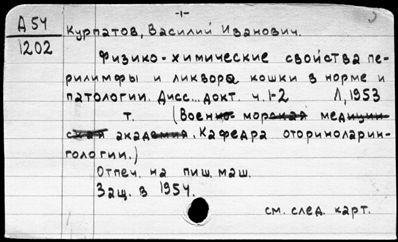 -1-
Д 54
1202
Курпатов, Василий Иванович.
Физико-химические свойства пе-
рилимфы и ликвора кошки в норме и
патологии. Дисс... докт. ч. 1-2 Л, 1953
т. (Военно морская медицин
ская академия. Кафедра оториноларин-
гологии.)
Отпеч. на пиш. маш.
Защ. в 1954.
см. след. карт.